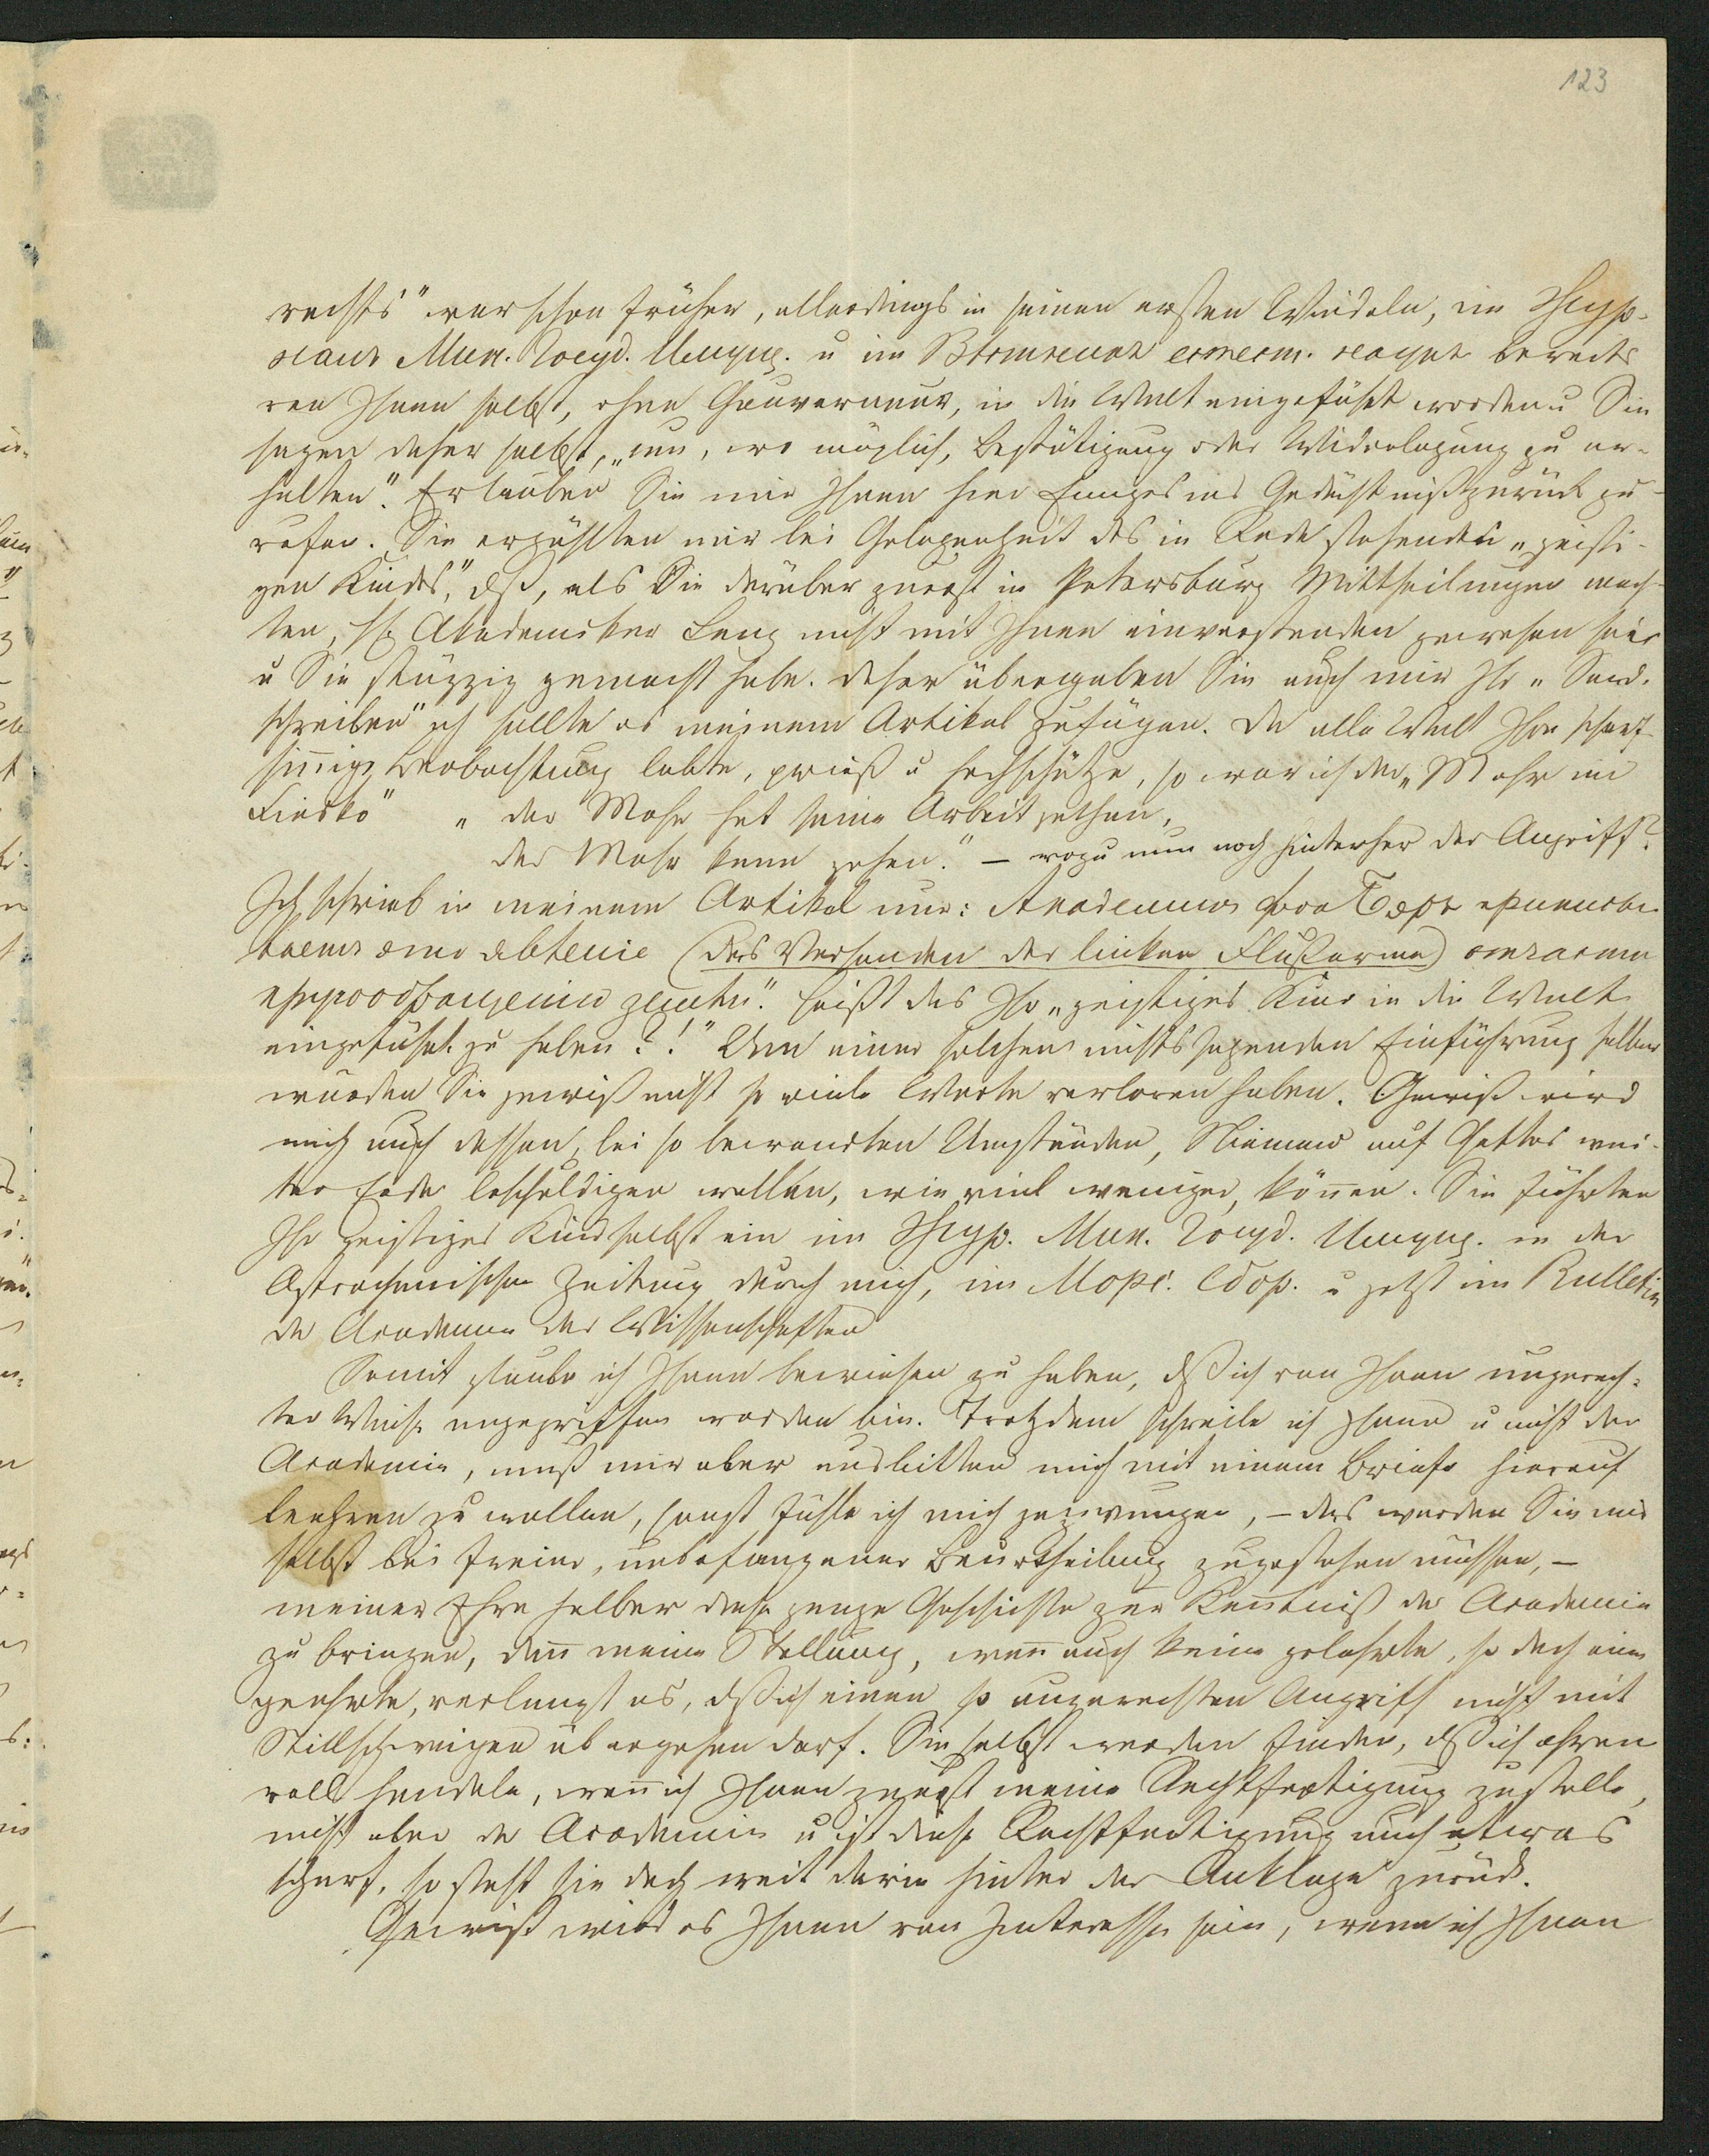 123
rechts" war schon früher, allerdings in seinen ersten Windeln, im Жур-
налъ Мин. Госуд. Имущ. u im Вѣстникъ естеств. наукъ bereits
von Ihnen selbst, ohne Gouverneur, in die Welt eingeführt worden u Sie
sagen daher selbst, „um, wo möglich, Bestätigung oder Widerlegung zu er-
halten". Erlauben Sie mir Ihnen hier Einiges ins Gedächtniß zurück zu
rufen. Sie erzählten mir bei Gelegenheit des in Rede stehenden „geisti-
gen Kindes," dß, als Sie darüber zuerst in Petersburg Mittheilungen mach-
ten, H Akademiker Lenz nicht mit Ihnen einverstanden gewesen sei
u Sie stuzzig gemacht habe. Daher übergaben Sie auch mir Ihr „Send-
schreiben" ich sollte es meinem Artikel zufügen. Da alle Welt Ihre scharf-
sinnige Beobachtung lobte, pries u hochschätze, so war ich der „Mohr im
Fiesko" „der Mohr hat seine Arbeit gethan,
der Mohr kann gehen." – wozu nun noch hinterher der Angriff?
Ich schrieb in meinem Artikel nur: Академикъ фон Бэръ приписы-
ваетъ это явленіе (das Versanden der linken Flußarme) отчасти
вращенію земли". heißt das Ihr „geistiges Kind in die Welt
eingeführt zu haben?!" Um einer solchen nichtssagenden Einführung halber
wurden Sie gewiß nicht so viele Worte verloren haben. Gewiß wird
mich auch dessen, bei so bewandten Umständen, Niemand auf Gottes wei-
ter Erde beschuldigen wollen, wie viel weniger, können. Sie führten
Ihr geistiges Kind selbst ein im Жур. Мин. Госуд. Имущ. in der
Astrachanischen Zeitung durch mich, im Морс. Сбор. u jetzt im Bulletin
de Academie der Wissenschaften
Somit glaube ich Ihnen bewiesen zu haben, dß ich von Ihnen ungerech-
ter Weise angegriffen worden bin. Trotzdem schreibe ich Ihnen u nicht der
Academie, muß mir aber ausbitten mich mit einem Briefe hierauf
beehren zu wollen, sonst fühle ich mich gezwungen, – das werden Sie mir
selbst bei freier, unbefangener Beurtheilung zugestehen müssen, –
meiner Ehre halber diese ganze Geschichte zur Kenntniß der Academie
zu bringen, denn meine Stellung, wenn auch keine gelehrte, so doch eine
geehrte, verlangt es, dß ich einen so ungerechten Angriff nicht mit
Stillschweigen übergehen darf. Sie selbst werden finden, dß ich ehren
voll handele, wenn ich Ihnen zuerst meine Rechtfertigung zustelle,
nicht aber der Academie u ist diese Rechtfertigung auch etwas
scharf, so steht sie doch weit darin hinter der Anklage zurück.
Gewiß wird es Ihnen von Interesse sein, wenn ich Ihnen